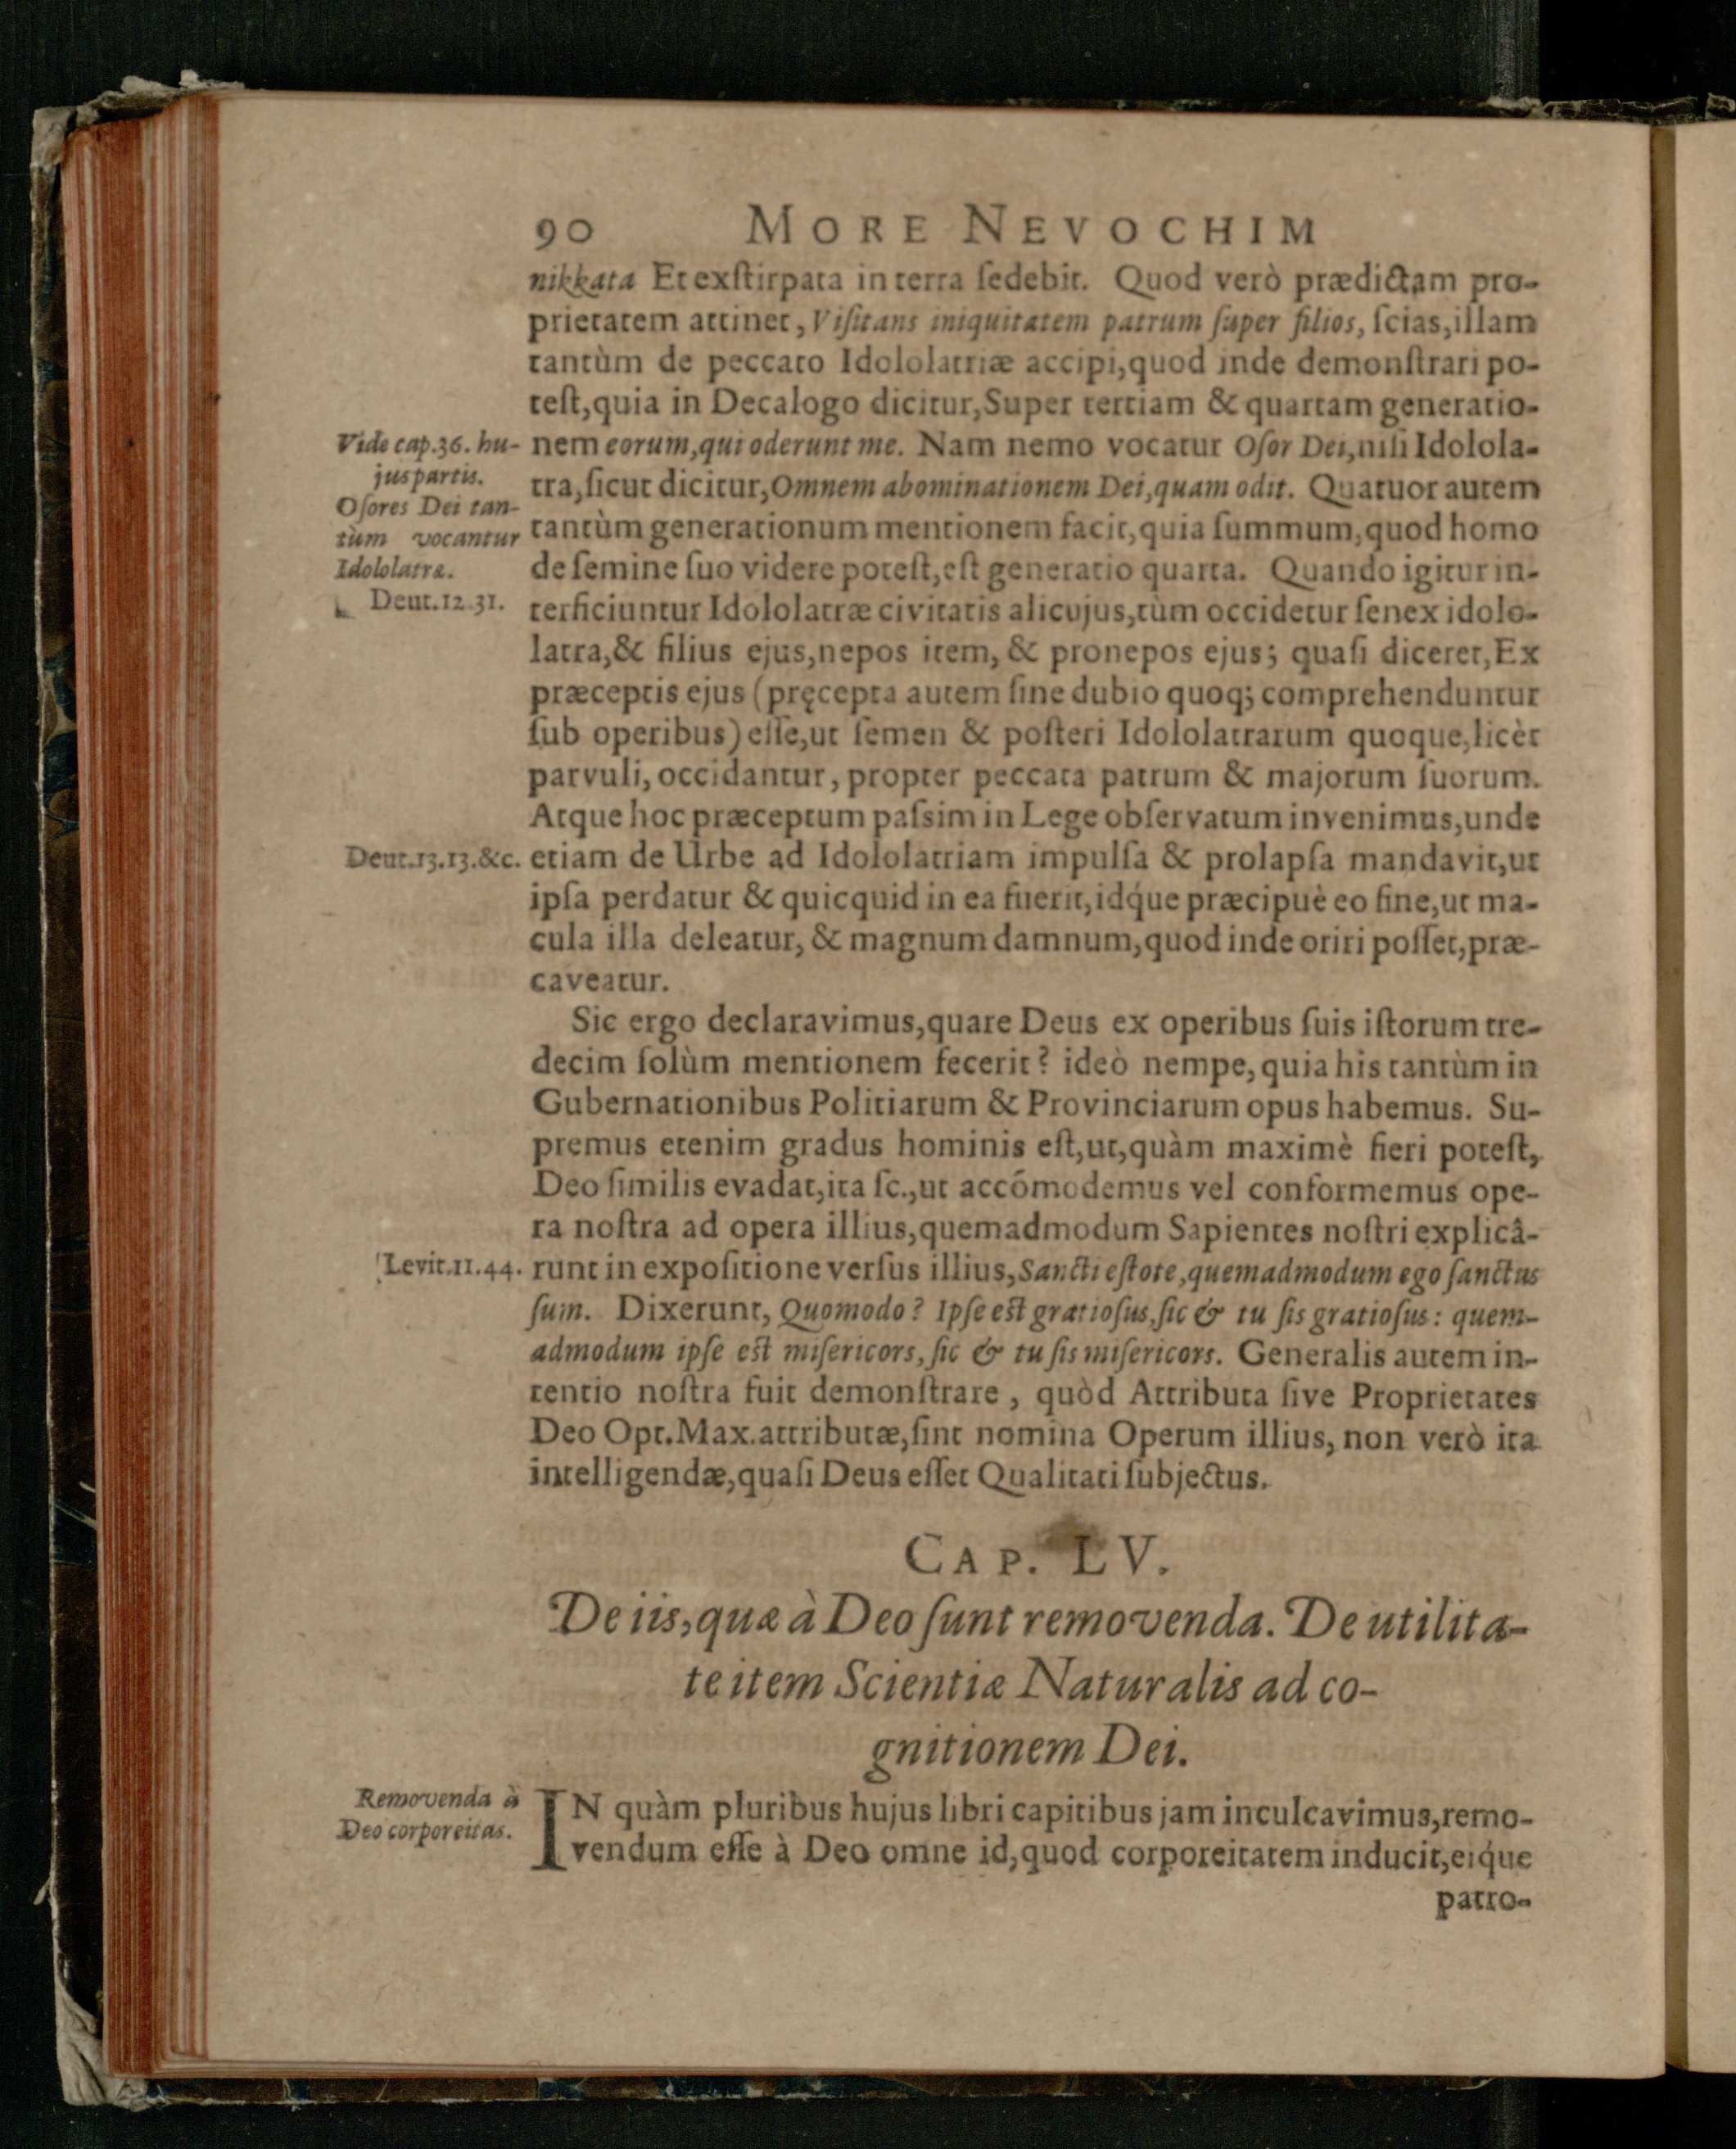 90 MORE NEVOCHIM
nikkata Et exſtirpata in terra ſedebit. Quod verò prædictam pro-
prietatem attinet, Viſitans iniquitatem patrum ſuper filios, ſcias, illam
tantùm de peccato Idololatriæ accipi, quod inde demonſtrari po-
teſt, quia in Decalogo dicitur, Super tertiam & quartam generatio-
Vide cap. 36. hu-
jus partis.
Oſores Dei tan-
tùm vocantur
Idololatræ.
Deut. 12. 31.
nem eorum, qui oderunt me. Nam nemo vocatur Oſor Dei, niſi Idolola-
tra, ſicut dicitur, Omnem abominationem Dei, quam odit. Quatuor autem
tantùm generationum mentionem facit, quia ſummum, quod homo
de ſemine ſuo videre poteſt, eſt generatio quarta. Quando igitur in-
terficiuntur Idololatræ civitatis alicujus, tùm occidetur ſenex idolo-
latra, & filius ejus, nepos item, & pronepos ejus; quaſi diceret, Ex
præceptis ejus (pręcepta autem ſine dubio quoq; comprehenduntur
ſub operibus) eſſe, ut ſemen & poſteri Idololatrarum quoque, licèt
parvuli, occidantur, propter peccata patrum & majorum ſuorum.
Atque hoc præceptum paſsim in Lege obſervatum invenimus, unde
Deut. 13. 13. &c.
etiam de Urbe ad Idololatriam impulſa & prolapſa mandavit, ut
ipſa perdatur & quicquid in ea fuerit, idq́ue præcipuè eo fine, ut ma-
cula illa deleatur, & magnum damnum, quod inde oriri poſſet, præ-
caveatur.
Sic ergo declaravimus, quare Deus ex operibus ſuis iſtorum tre-
decim ſolùm mentionem fecerit? ideò nempe, quia his tantùm in
Gubernationibus Politiarum & Provinciarum opus habemus. Su-
premus etenim gradus hominis eſt, ut, quàm maximè fieri poteſt,
Deo ſimilis evadat, ita ſc., ut accómodemus vel conformemus ope-
ra noſtra ad opera illius, quemadmodum Sapientes noſtri explicâ-
Levit. 11. 44.
runt in expoſitione verſus illius, Sancti eſtote, quemadmodum ego ſanctus
ſum. Dixerunt, Quomodo? Ipſe eſt gratioſus, ſic & tu ſis gratioſus: quem-
admodum ipſe eſt miſericors, ſic & tu ſis miſericors. Generalis autem in-
tentio noſtra fuit demonſtrare, quòd Attributa ſive Proprietates
Deo Opt. Max. attributæ, ſint nomina Operum illius, non verò ita
intelligendæ, quaſi Deus eſſet Qualitati ſubjectus.
CAP. LV.
De iis, quæ à Deo ſunt removenda. De utilita-
te item Scientiæ Naturalis ad co-
gnitionem Dei.
Removenda à
Deo corporeitas.
IN quàm pluribus hujus libri capitibus jam inculcavimus, remo-
vendum eſſe à Deo omne id, quod corporeitatem inducit, eiq́ue
patro-